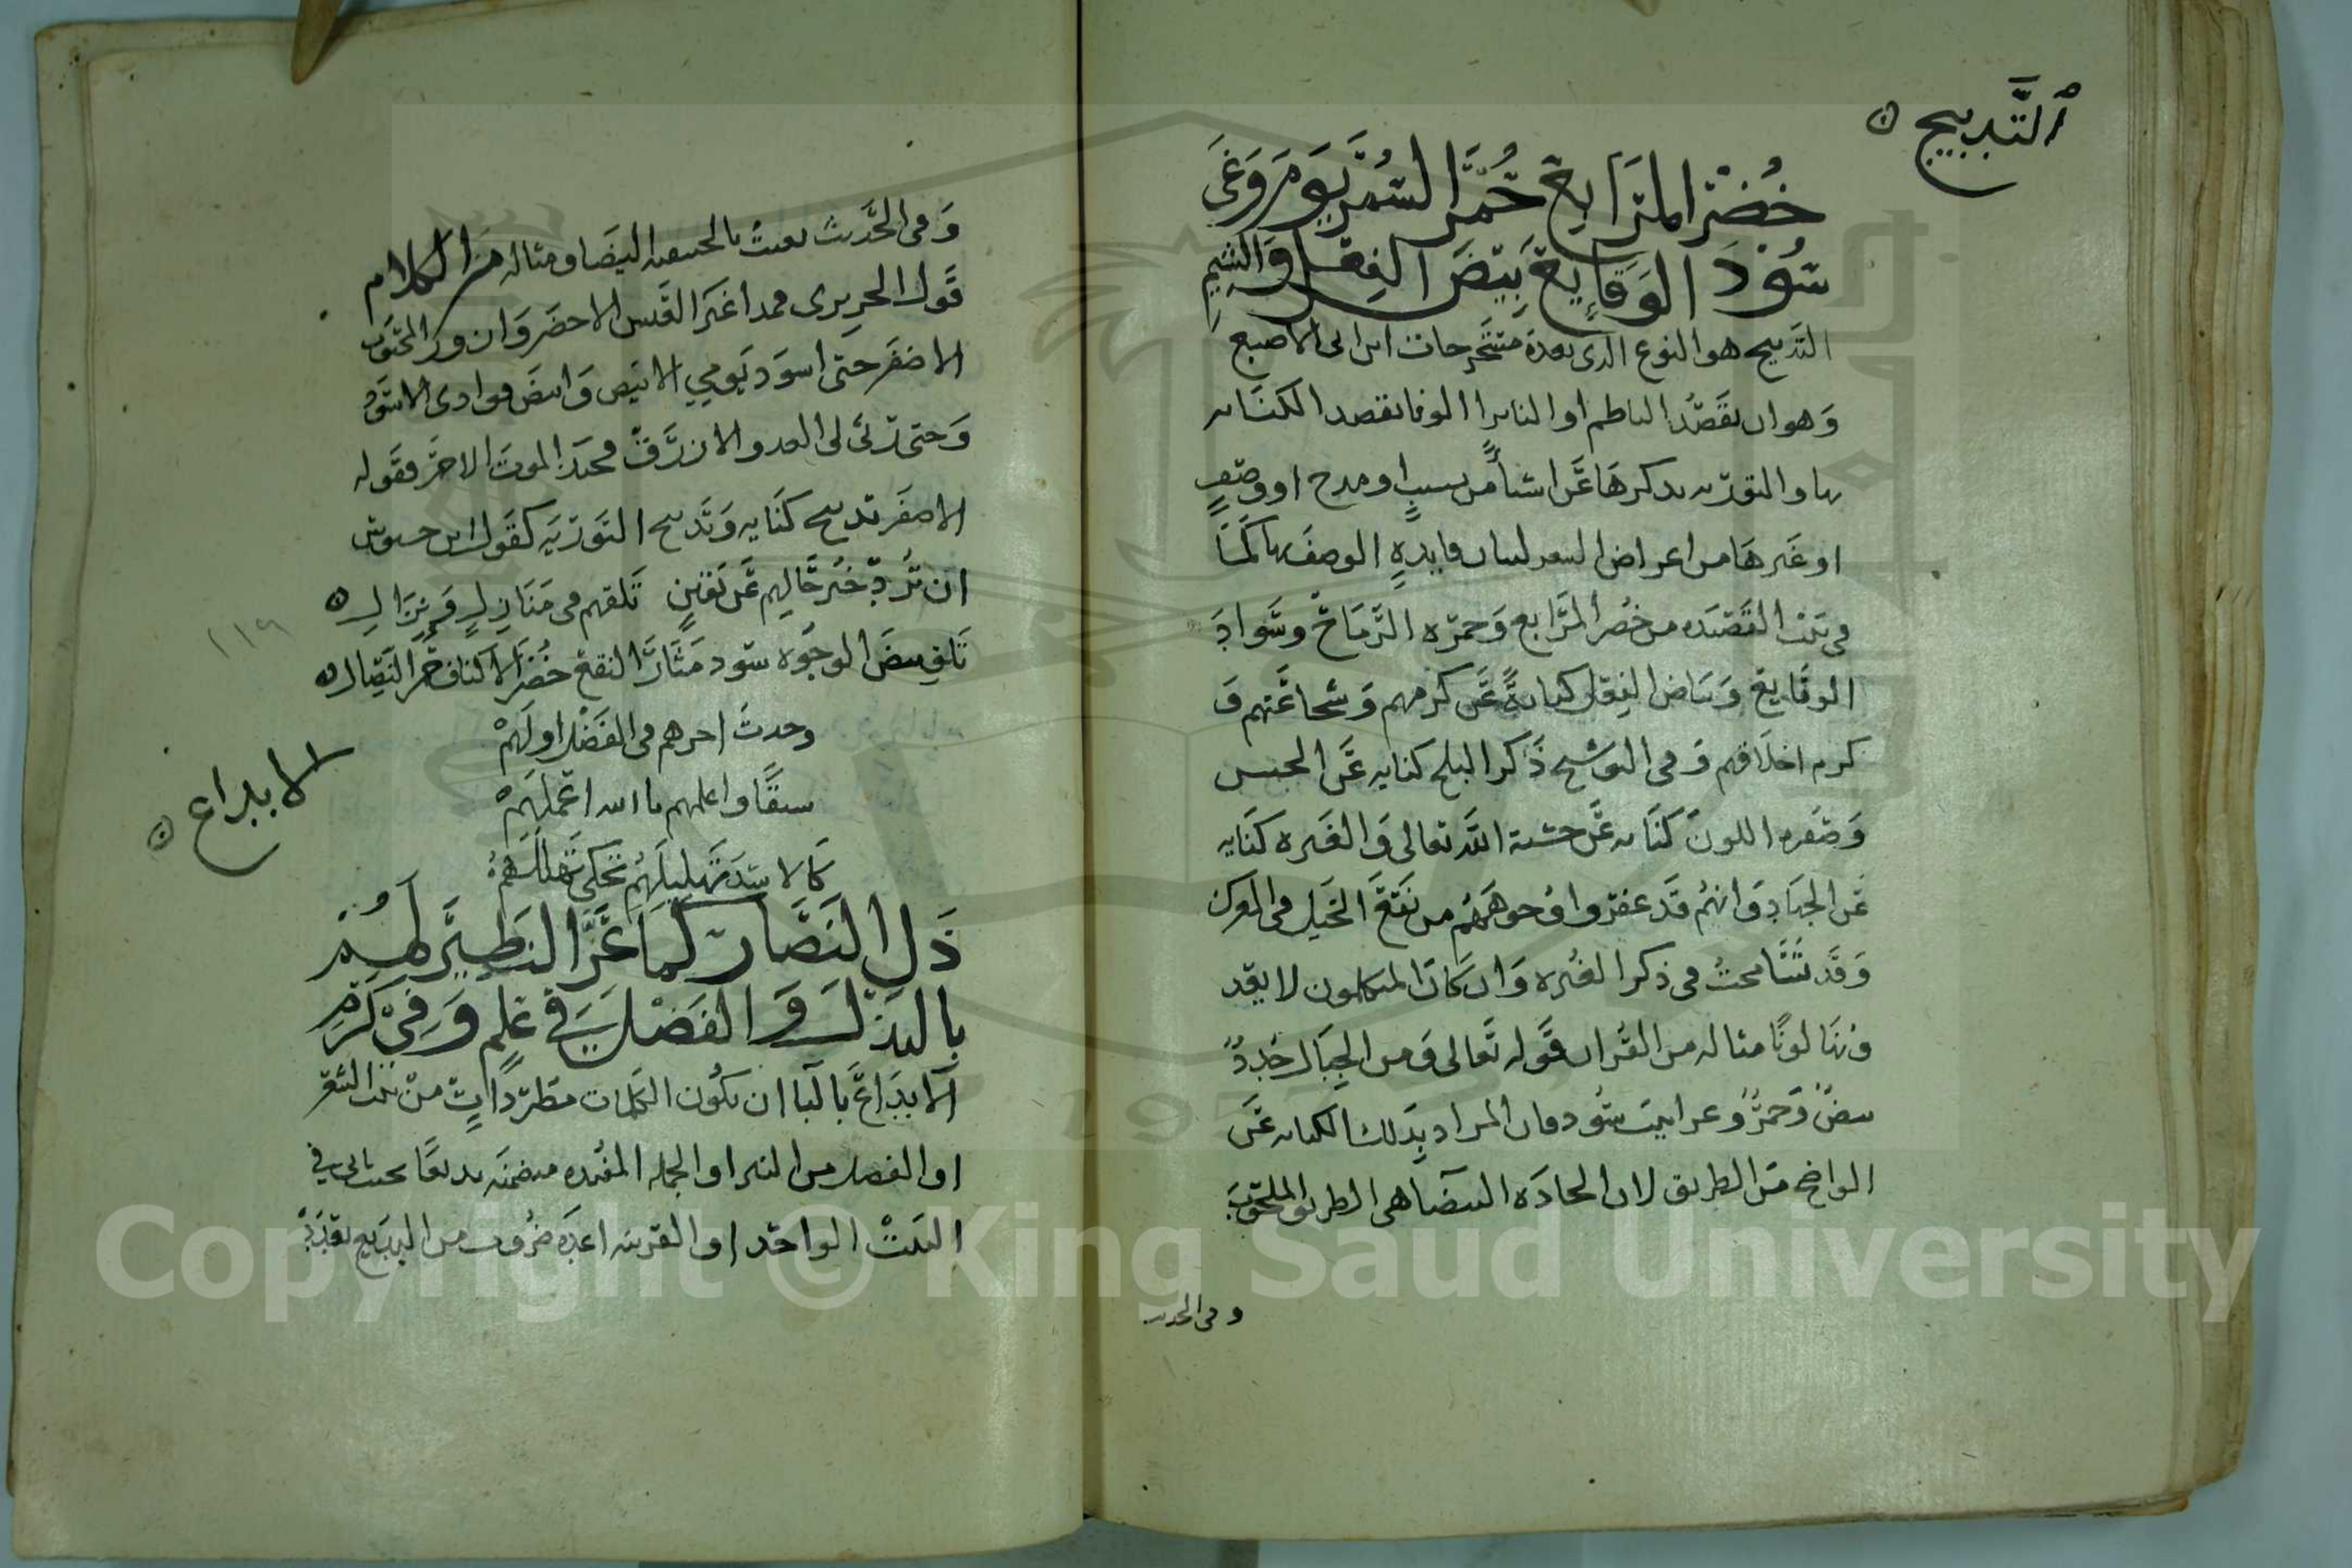 التَّدبيج
خُضْرُ المَرَابِعِ حُمْرُ السُّمْرِ يَوْمَ وَغَىً
سُوْدُ الوَقَايِعِ بِيْضُ الفِعْلِ وَالشِّيَمِ
التدبيج هو النوع الذي من مستخرجات ابن ابي الاصبع
وهو ان يقصد الناظم او الناثر الوانا يقصد الكناية
بها والتورية بذكرها عن اشيا من نسيب او مدح او وصف
او غيرها من اعراض الشعر لبيان فايدة الوصف بها كما
في بيت القصيدة من خضر المرابع وحمرة الرماح وسواد
الوقايع وبياض الفعل كناية عن كرمهم وشجاعتهم و
كرم اخلاقهم وفي التوشيح ذكر البلج كناية عن
وصفره اللون كناية عن خشية الله تعالى والغبرة كناية
عن الجهاد وانهم قد عفروا وجوههم من نقع الخيل في المعرك
وقد تسامحت في ذكر الغبرة وان كان المتكلمون لا يعد
ونها لونا مثاله من القران قوله تعالى ومن الجبال جدد
بيض وحمر وغرابيب سود فان المراد بذلك الكناية عن
الواضح من الطريق لان الجادة البيضا هي الطريق الملحوب
وفي الحديث
وفي الحديث بعثت بالحنيفية البيضا ومثاله من الكلام
قول الحريري فمذ اغبر العيش الاخضر وازور المحبوب
الاصفر حتى اسود يومي الابيض وابيض فوادي الاسود
وحتى رثى لي العدو الازرق فحبذا الموت الاحمر فقوله
الاصفر تدبيج كناية وتدبيج التورية كقول ابن حيوس
ان ترد خبر حالهم عن يقين تلقهم في منازل ونزال
تلق بيض الوجوه سود مثار النقع خضر الاكناف حمر النصال
١١٩
وحدث اخرهم في الفضل اولهم
سبقا واعلمهم بالله اعملهم
الابداع
كالاسد تهليلهم تحكي تهللهم
ذَلَّ النُّضَارُ كَمَا عَزَّ النَّظِيْرُ لَهُمْ
بِالبَذْلِ وَالفَضْلِ فِيْ عِلْمٍ وَفِيْ كَرَمِ
الابداع بالبا ان يكون الكلمات مطردات من بيت الشعر
او الفصل من النثر او الجملة المفيدة متضمنة بديعا بحيث ياتي في
البيت الواحد او القرينة عدة ضروب من البديع بعدد